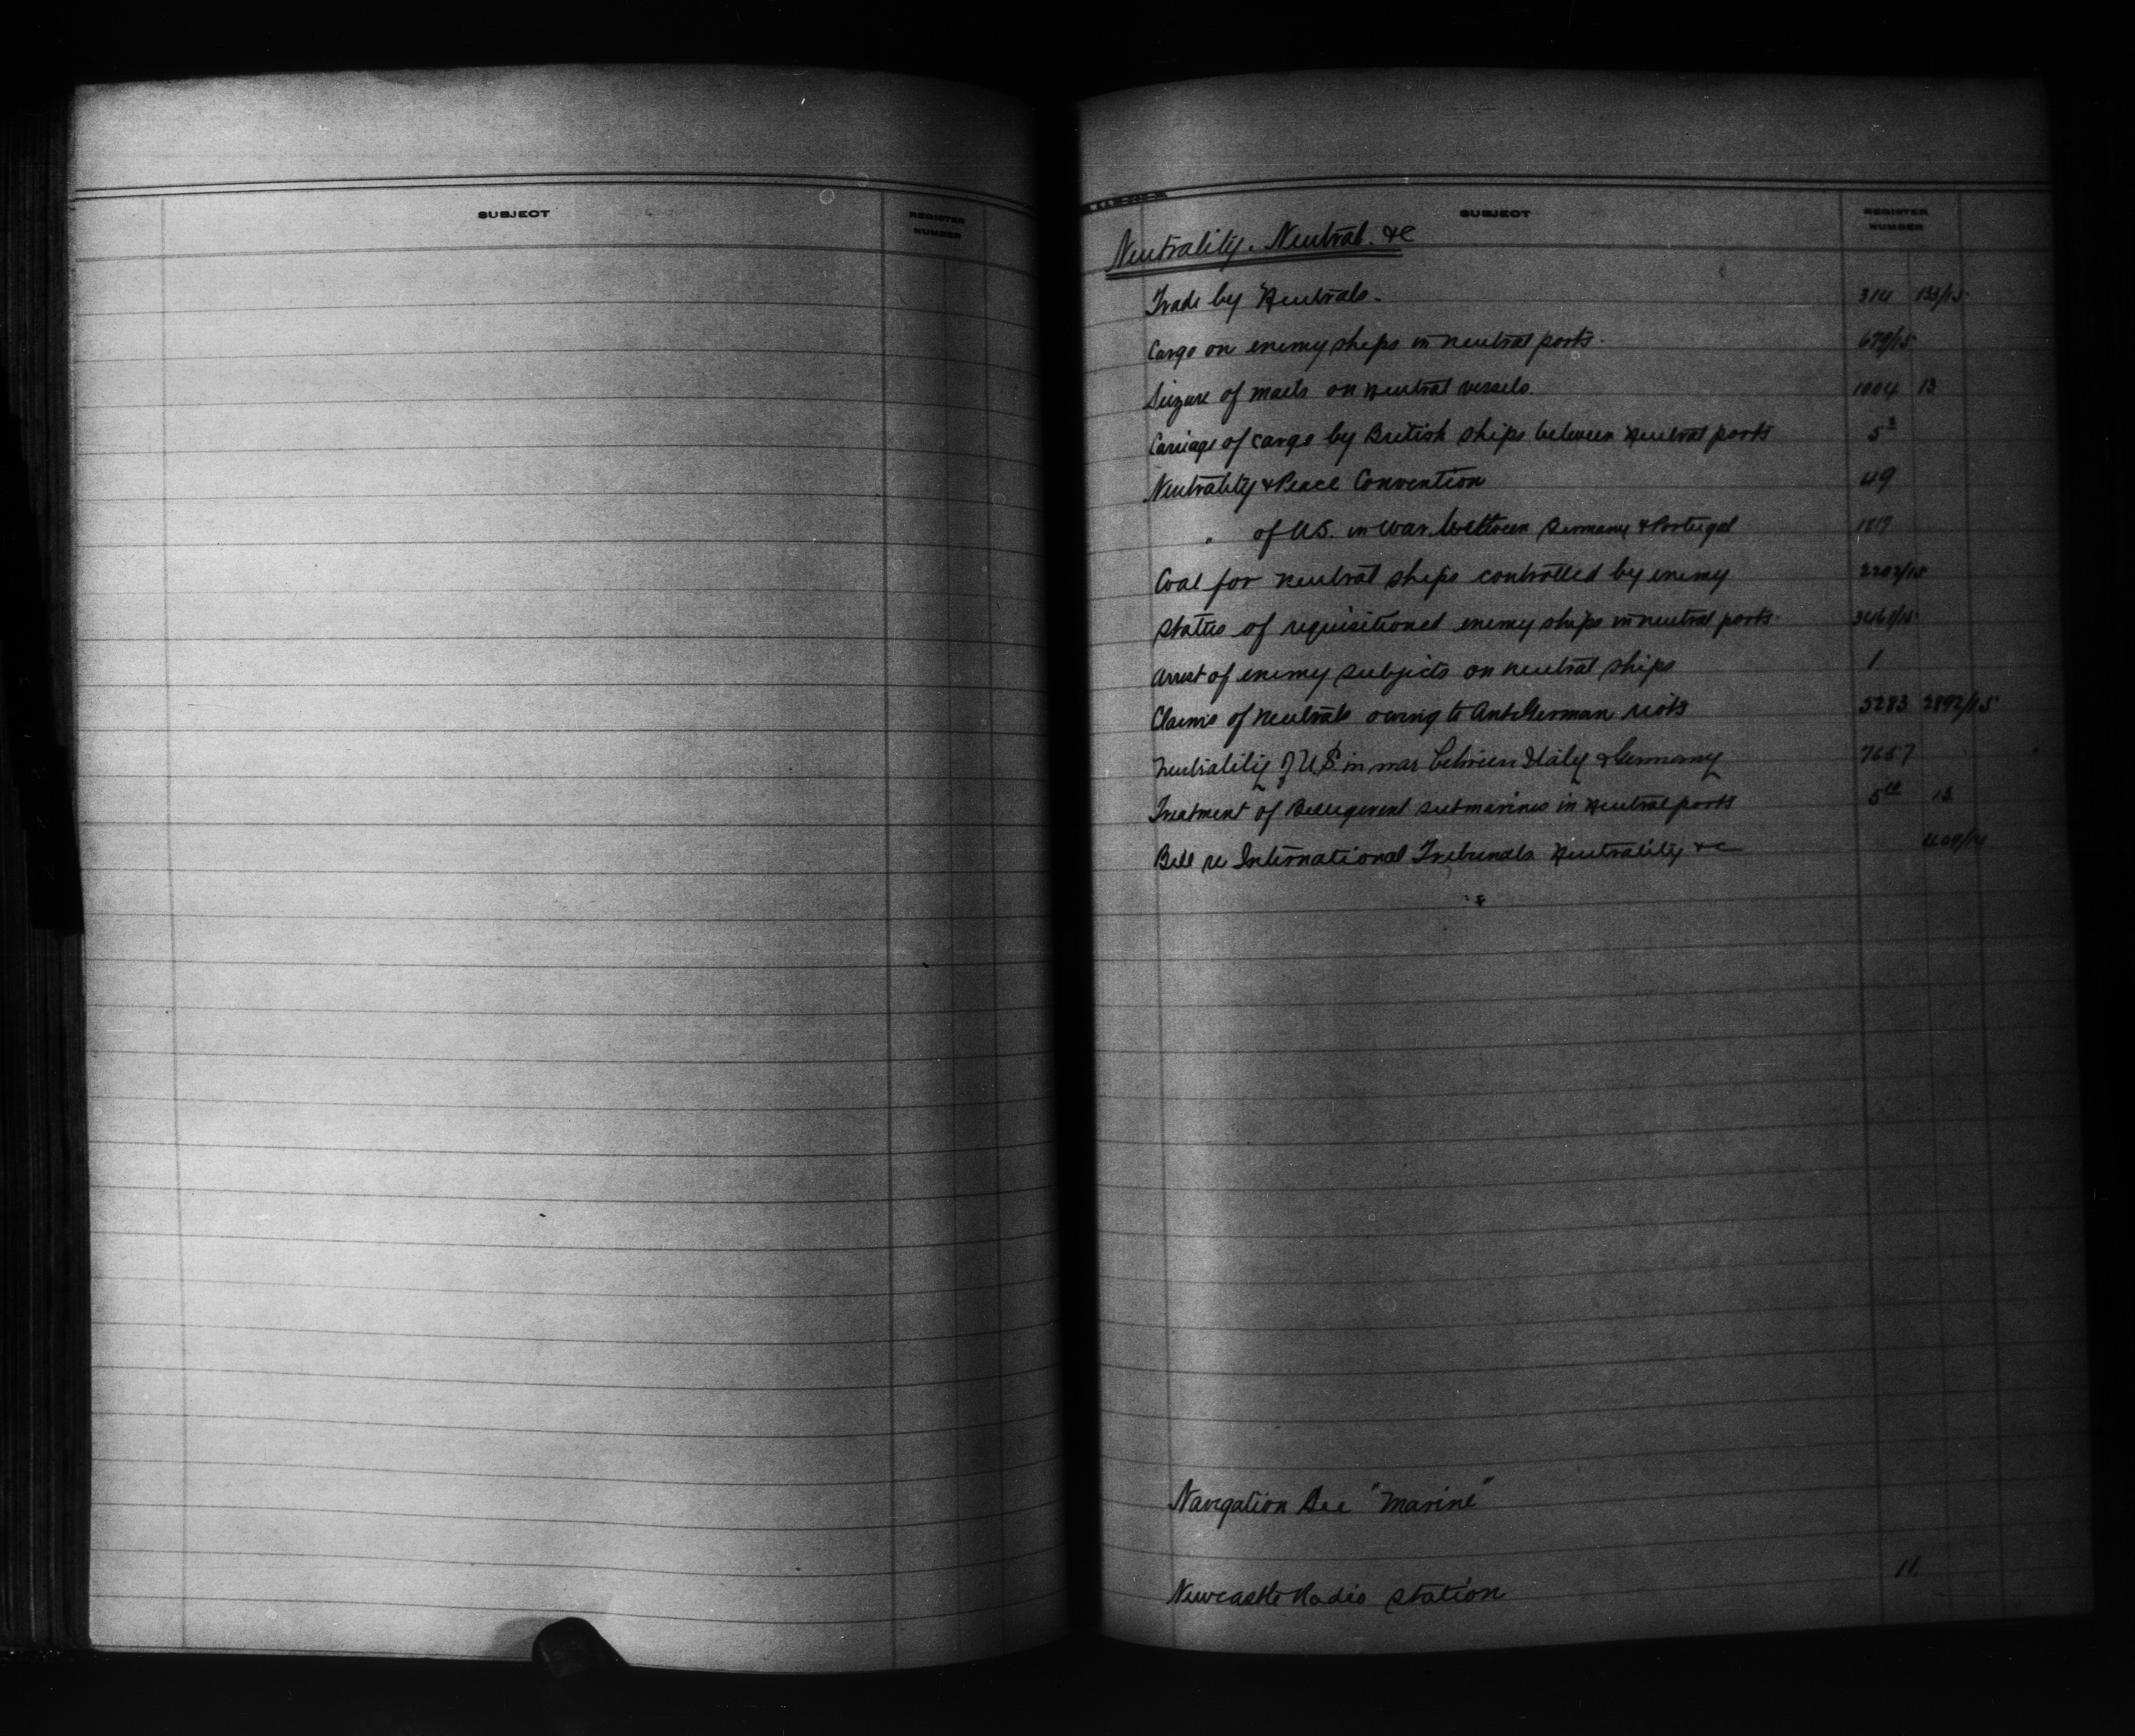 SUBJECT REGISTER NUMBER
SUBJECT REGISTER NUMBER
Neutrality. Neutral. &c
Trade by Neutrals. 314 133/15
Cargo on enemy ships in neutral ports. 679/15
Seizure of mails on neutral vessels. 1004 13
Carriage of cargo by British ships between neutral ports
Neutrality & Peace Convention 49
" of U.S. in war between Germany & Portugal
Coal for neutral ships controlled by enemy
Status of requisitioned enemy ships in neutral ports.
Arrest of enemy subjects on neutral ships 1
Claims of neutrals owing to Anti German riots 5283 2892/15
Neutrality of U.S. in war between Italy & Germany 7657
Treatment of Belligerent submarines in neutral ports 13
Bill re International Tribunals Neutrality &c
Navigation See "Marine"
Newcastle Radio Station 11